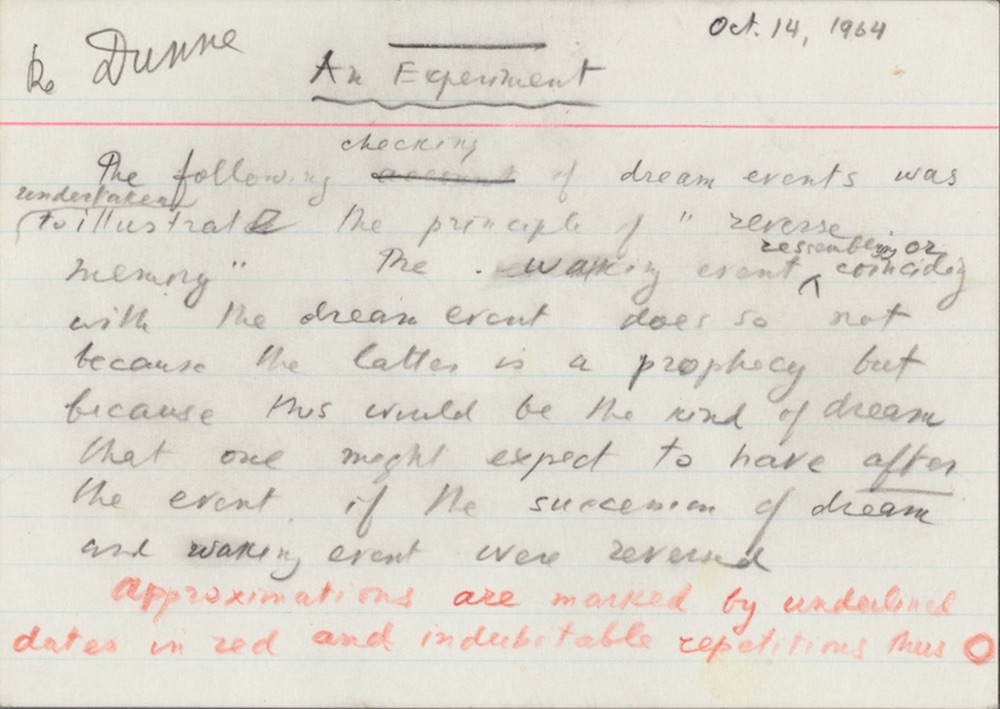 Oct. 14, 1964
Re Dunne
An Experiment
checking
The following account of dream events was
undertaken
to illustrate the principle of "reverse
ressembling or
memory" The waking event ^ coinciding
with the dream event does so not
because the latter is a prophecy but
because this would be the kind of dream
that one might expect to have after
the event, if the succession of dream
and waking event were reversed
Approximations are marked by underlined
dates in red and indubitable repetitions thus O